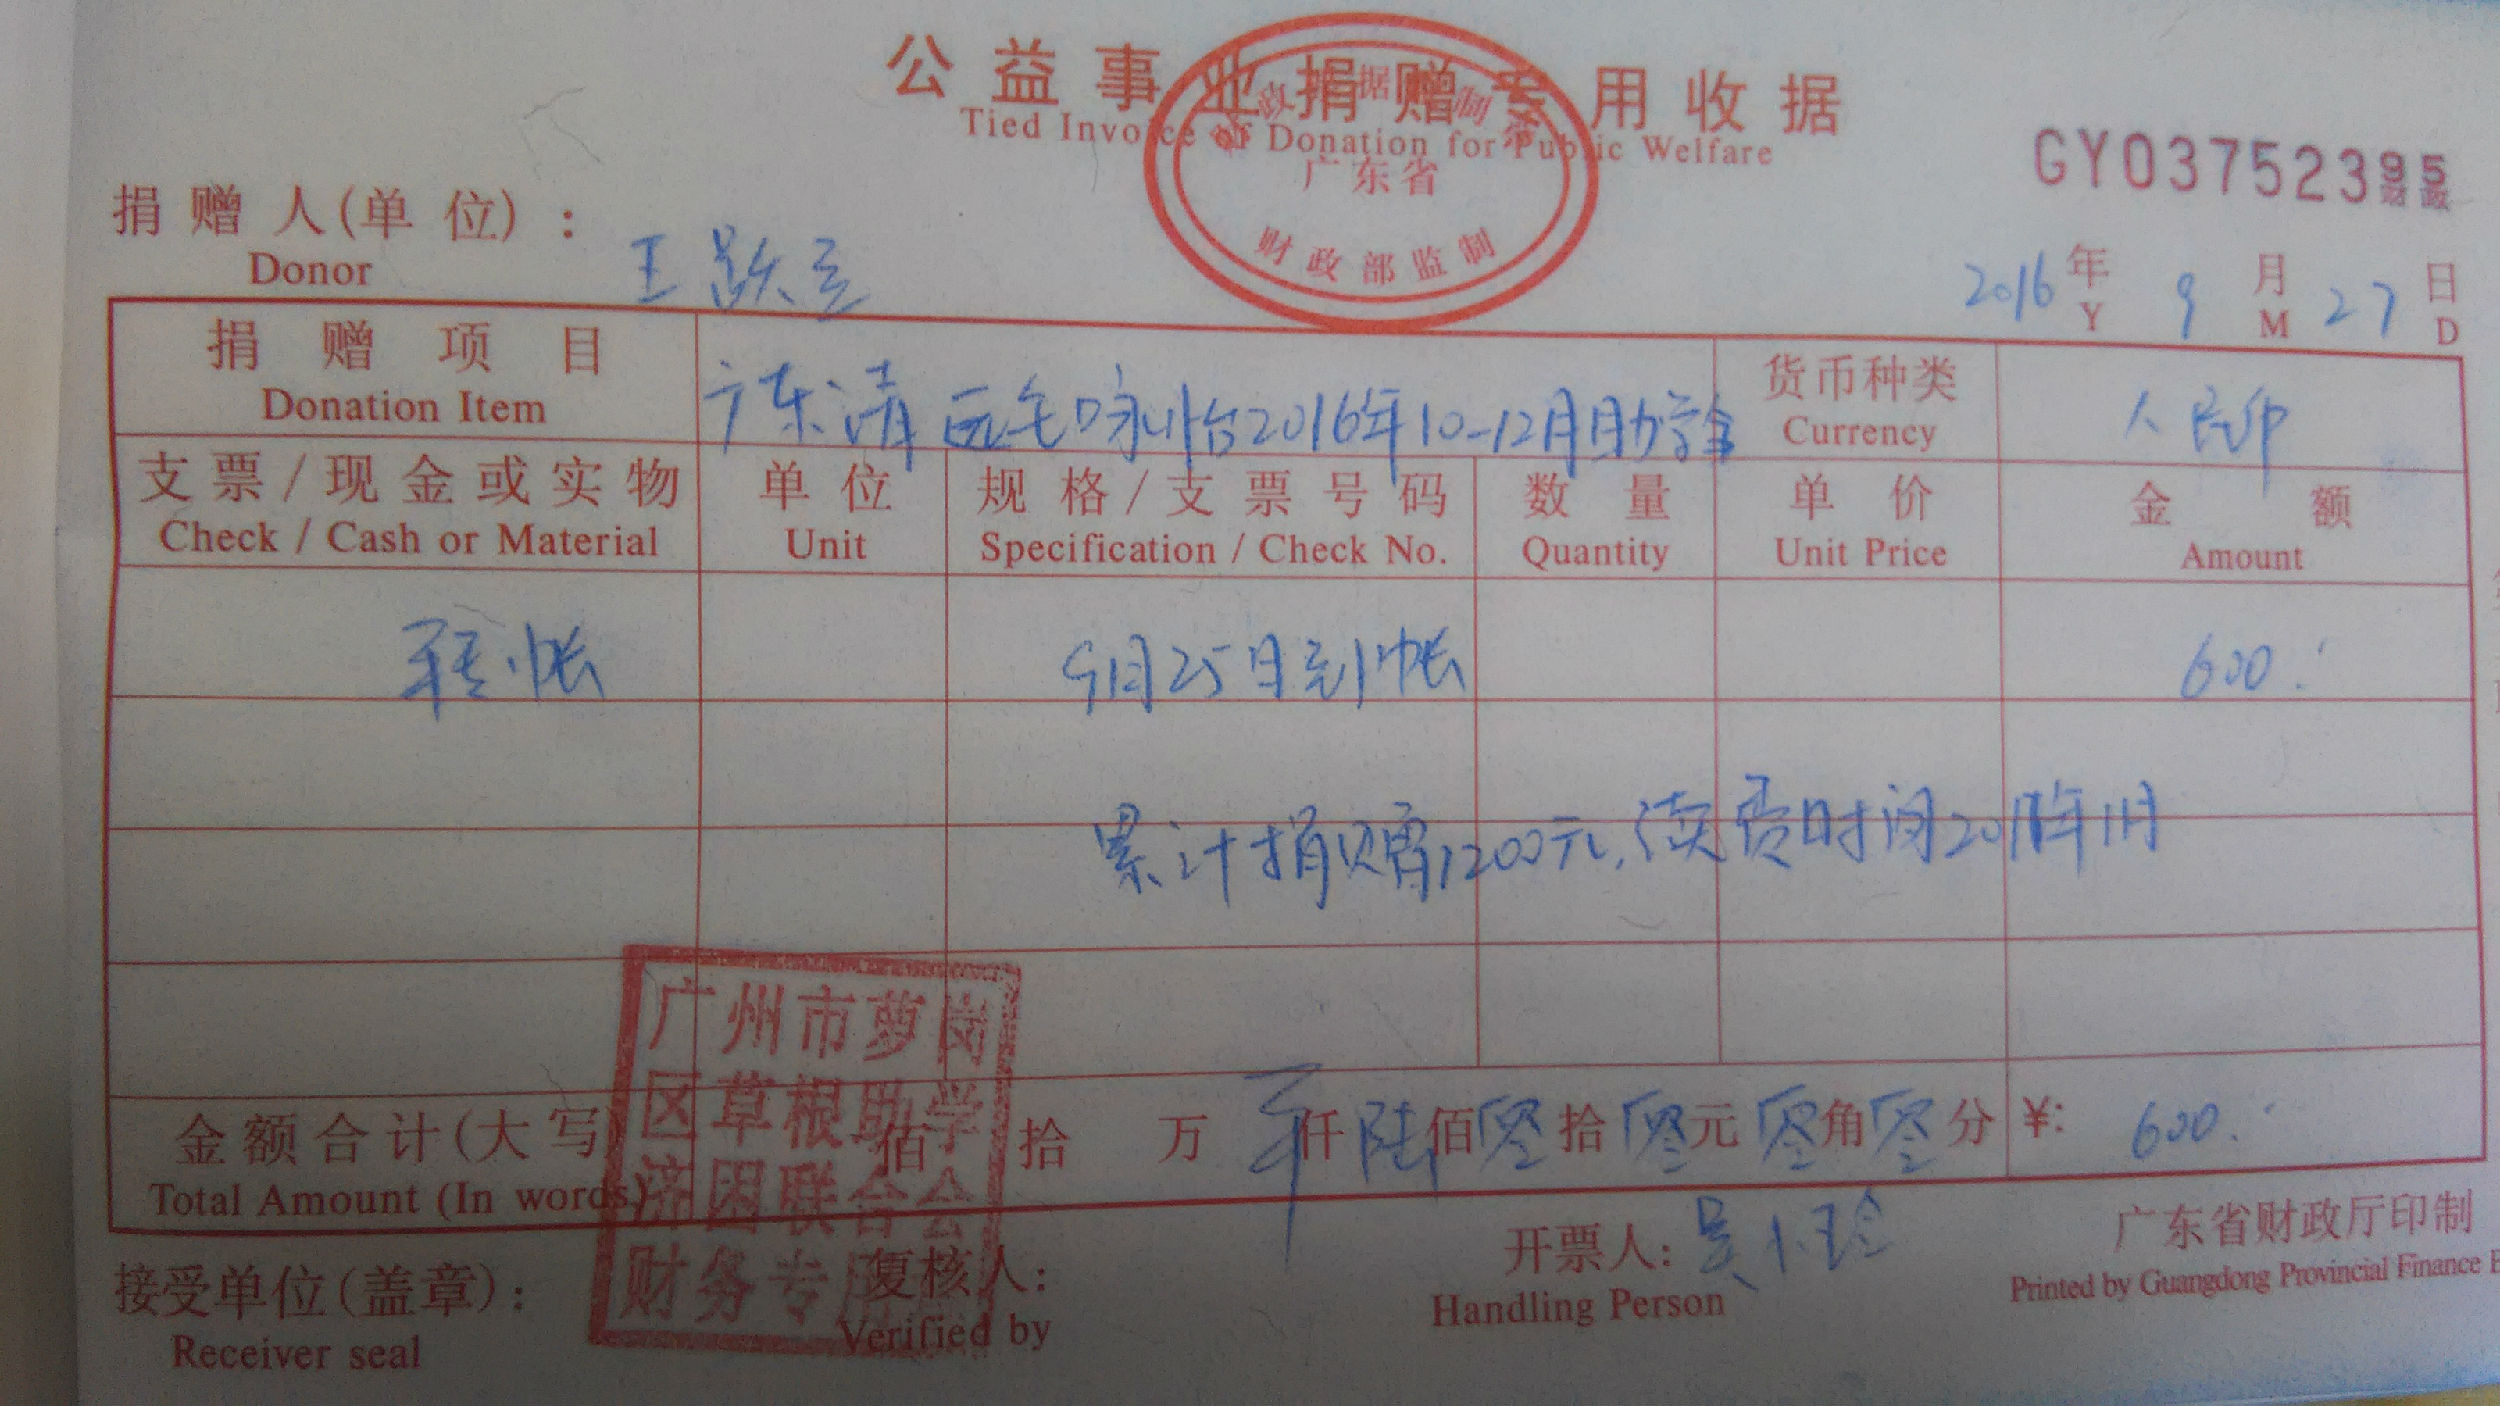 公益事业捐赠专用收据
Tied Invoice of Donation for Public Welfare
广东省
财政部监制
GY03752395
财政
捐赠人(单位):
Donor
王跃
2016年9月27日
Y M D
捐赠项目
Donation Item
广东清远 2016年10-12月助学金
货币种类
Currency
人民币
支票/现金或实物
Check / Cash or Material
单位
Unit
规格/支票号码
Specification / Check No.
数量
Quantity
单价
Unit Price
金额
Amount
转帐
9月25日到帐
600.
累计捐赠1200元,续费时间2017年1月
金额合计(大写)
Total Amount (In words)
佰 拾 万 仟陆佰零拾零元零角零分
¥: 600.
广州市萝岗
区草根助学
济困联合会
财务专用章
接受单位(盖章):
Receiver seal
复核人:
Verified by
开票人:吴小玲
Handling Person
广东省财政厅印制
Printed by Guangdong Provincial Finance